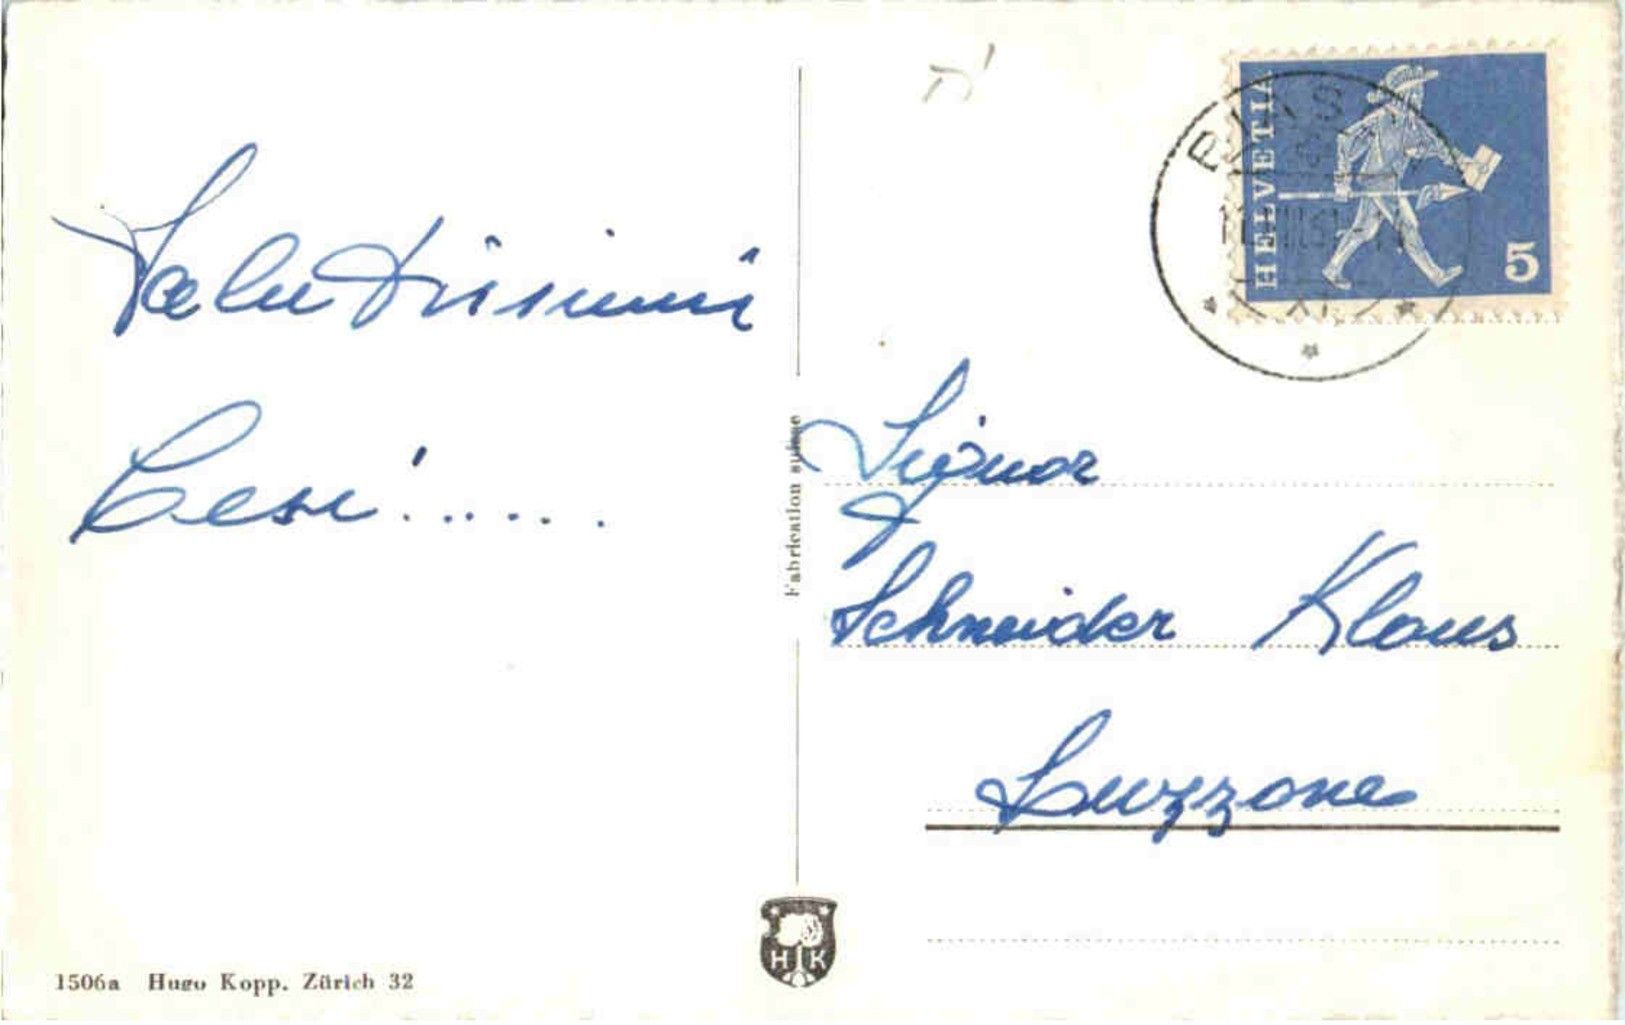 Salutissimi
Cesi'......
Fabrication suisse
HELVETIA
5
Signor
Schneider Klaus
Luzzone
H K
1506a Hugo Kopp. Zürich 32